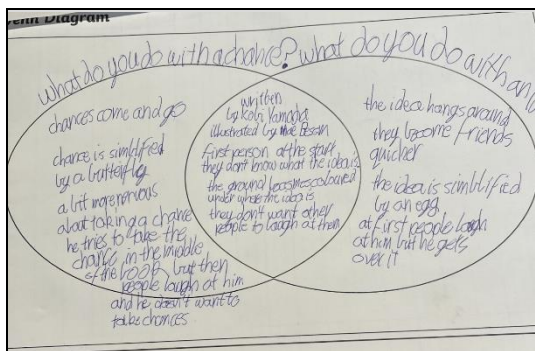 Venn Diagram
what do you do with a chance? what do you do with an i
chances come and go
chance is simblified
by a butterfly
a bit more nervous
about taking a chance
he tries to take the
chance in the middle
of the book but then
people laugh at him
and he doesn't want to
take chances
written
by Kobi Yamada
illustrated by Mae Besom
first person at the start
they don't know what the idea is
the ground becomes coloured
under where the idea is
they don't want other
people to laugh at them
the idea hangs around
they become friends
quicker
the idea is simblified
by an egg
at first people laugh
at him but he gets
over it